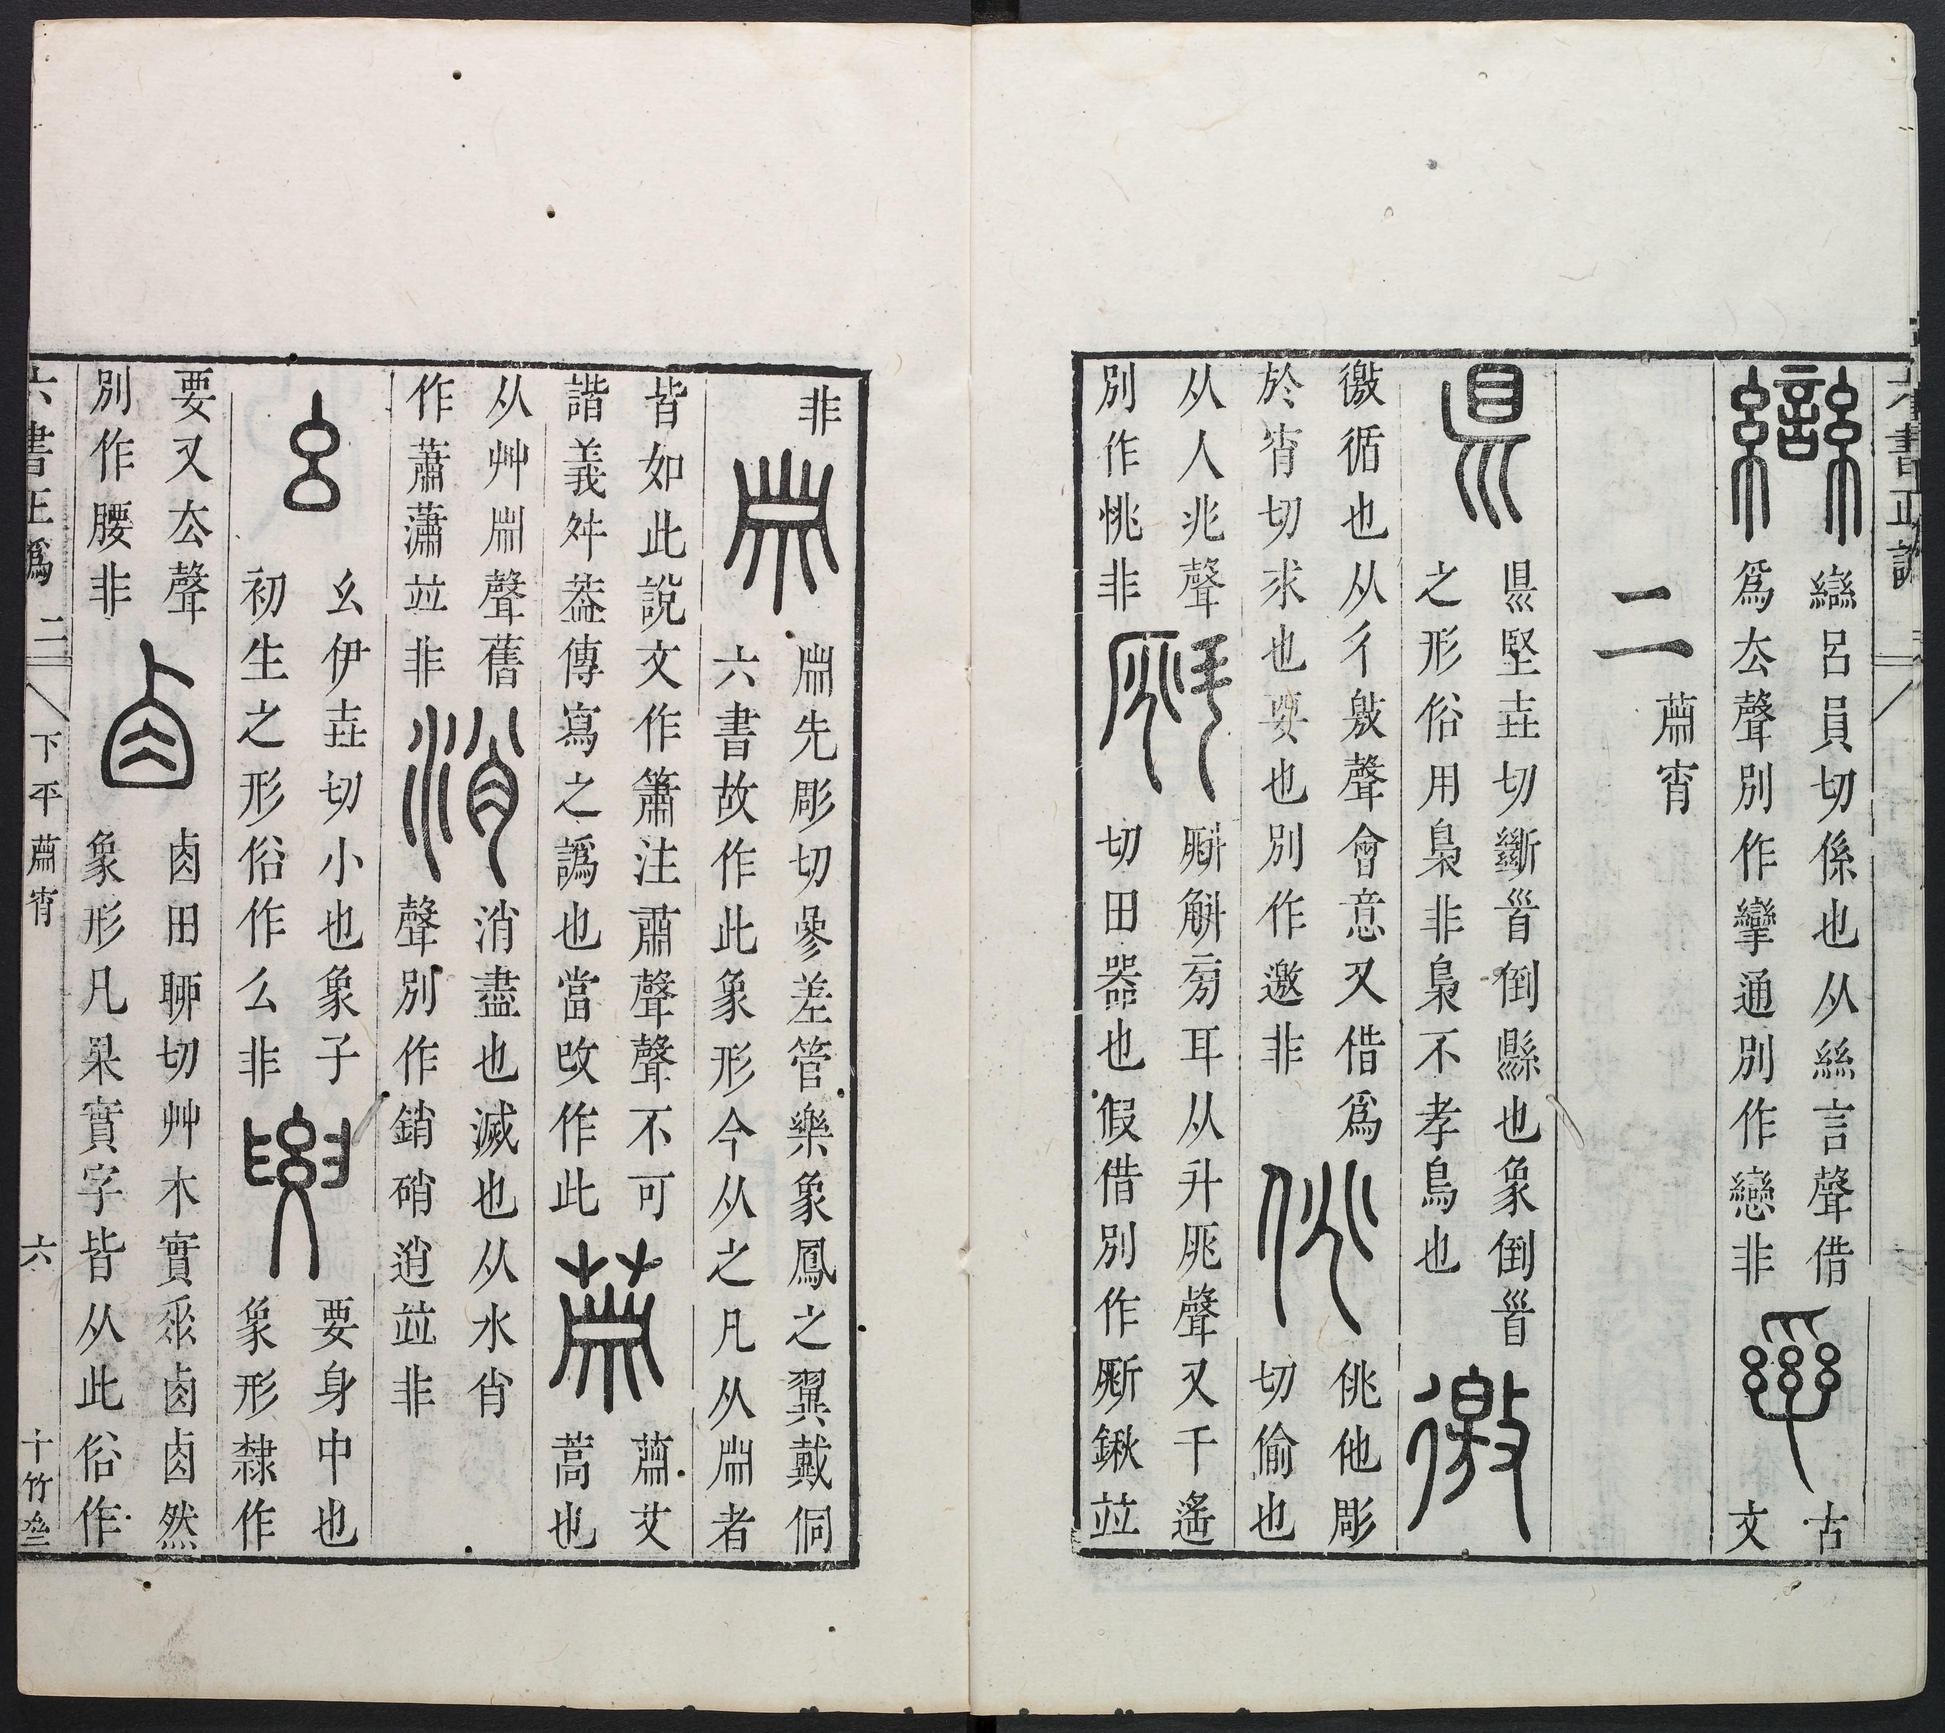 六書正譌
䜌 䜌呂員切係也从絲言聲借
爲厺聲別作攣通別作戀非
古
文
二
蕭宵
県 県堅垚切斷𩠐倒縣也象倒𩠐
之形俗用梟非梟不孝鳥也
徼 徼循也从彳敫聲會意又借爲
於宵切求也要也別作邀非
佻 佻他彫
切偷也
从人兆聲
別作恌非
斛旁耳从斗𠩓聲又千遙
切田器也假借別作鍬竝
非
先彫切參差管樂象鳳之翼戴侗
六書故作此象形今从之凡从者
皆如此說文作簫注肅聲聲不可
諧義舛葢傳寫之譌也當改作此
蕭艾
蒿也
从艸聲舊
作蕭瀟竝非
消 消盡也滅也从水肖
聲別作銷硝逍竝非
幺 幺伊垚切小也象子
初生之形俗作么非
要 要身中也
象形隸作
要又厺聲
別作腰非
卤 卤田聊切艸木實垂卤卤然
象形凡果實字皆从此俗作
六書正譌 二 下平蕭宵 六 十竹齋